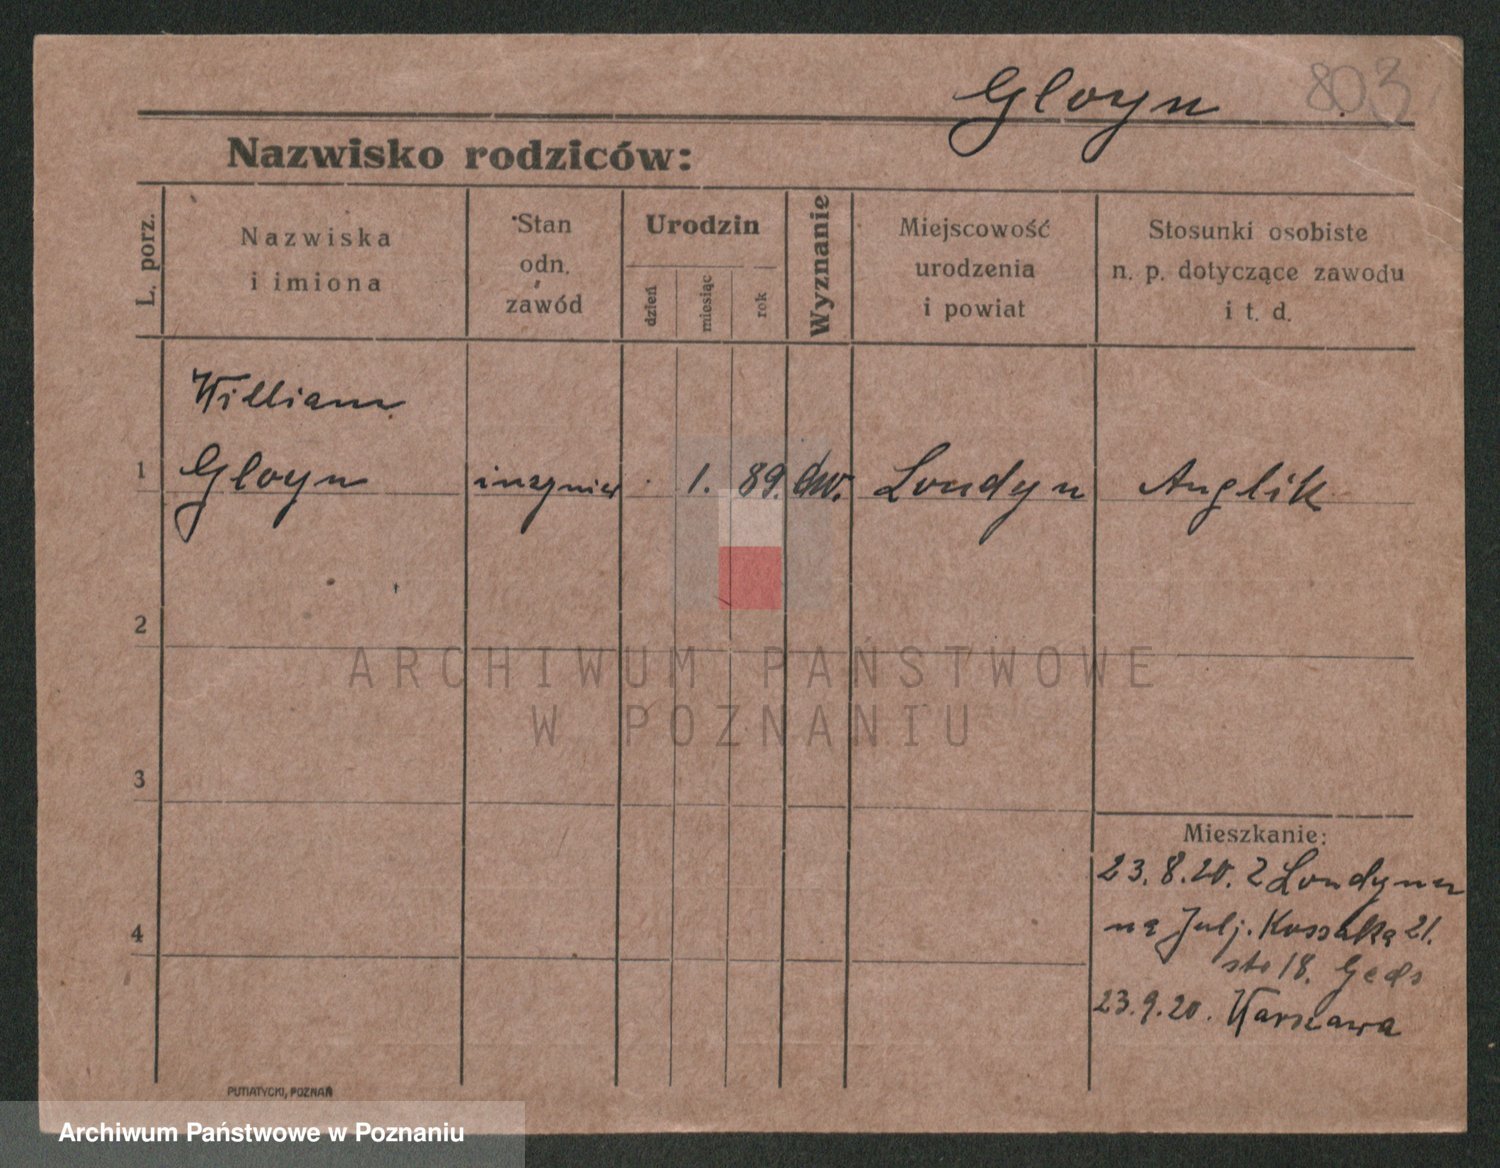 Gloyn 803
Nazwisko rodziców:
L. porz.
Nazwiska
i imiona
Stan
odn.
zawód
Urodzin
dzień
miesiąc
rok
Wyznanie
Miejscowość
urodzenia
i powiat
Stosunki osobiste
n. p. dotyczące zawodu
i t. d.
William
1 Gloyn inżynier 1. 89. ew. Londyn Anglik
2
ARCHIWUM PAŃSTWOWE
W POZNANIU
3
Mieszkanie:
23.8.20. z Londynu
4 na Julj. Kossaka 21.
18.
23.9.20. Warszawa
PUTIATYCKI, POZNAŃ
Archiwum Państwowe w Poznaniu